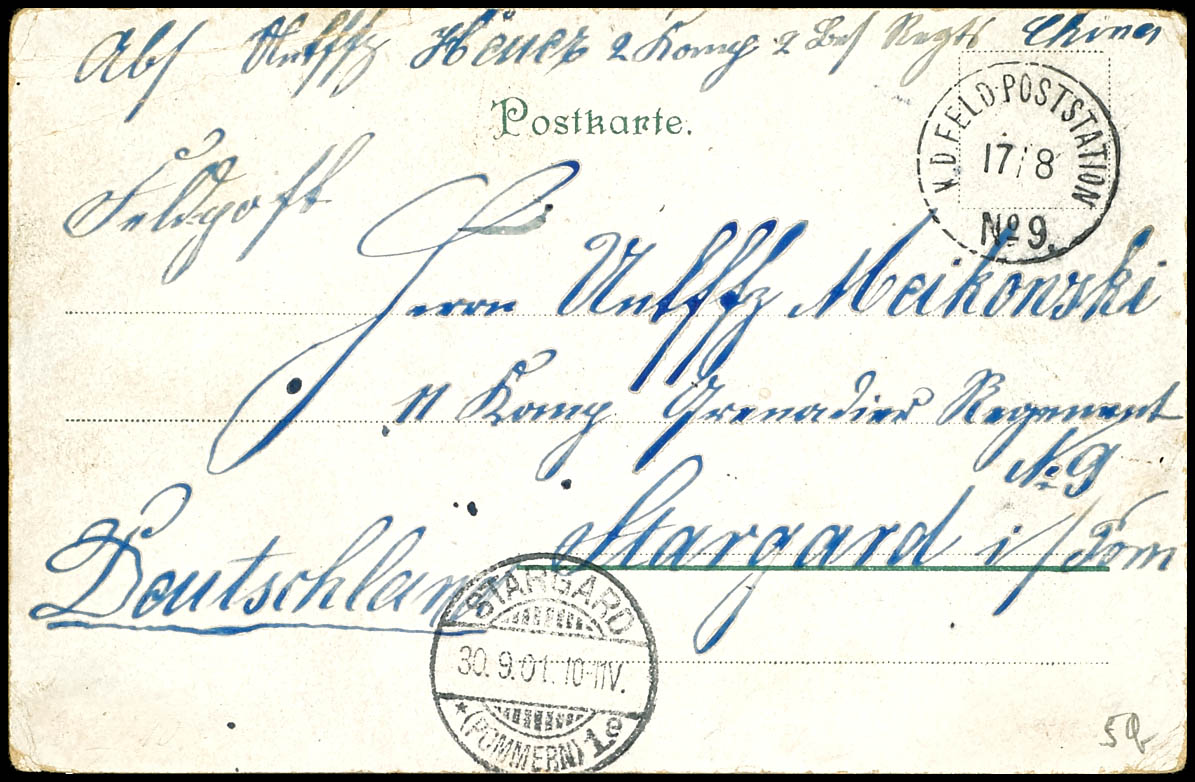 Abs Untffz Heuer 2 Komp 2 Bes Regts China
Postkarte.
K.D.FELD-POSTSTATION
17/8
No 9.
Feldpost
Herrn Untffz Meikowski
11 Komp Grenadier Regement
No 9
Stargard i/Pom
Deutschland
STARGARD
30.9.01.10-11V.
* (POMMERN) 1e